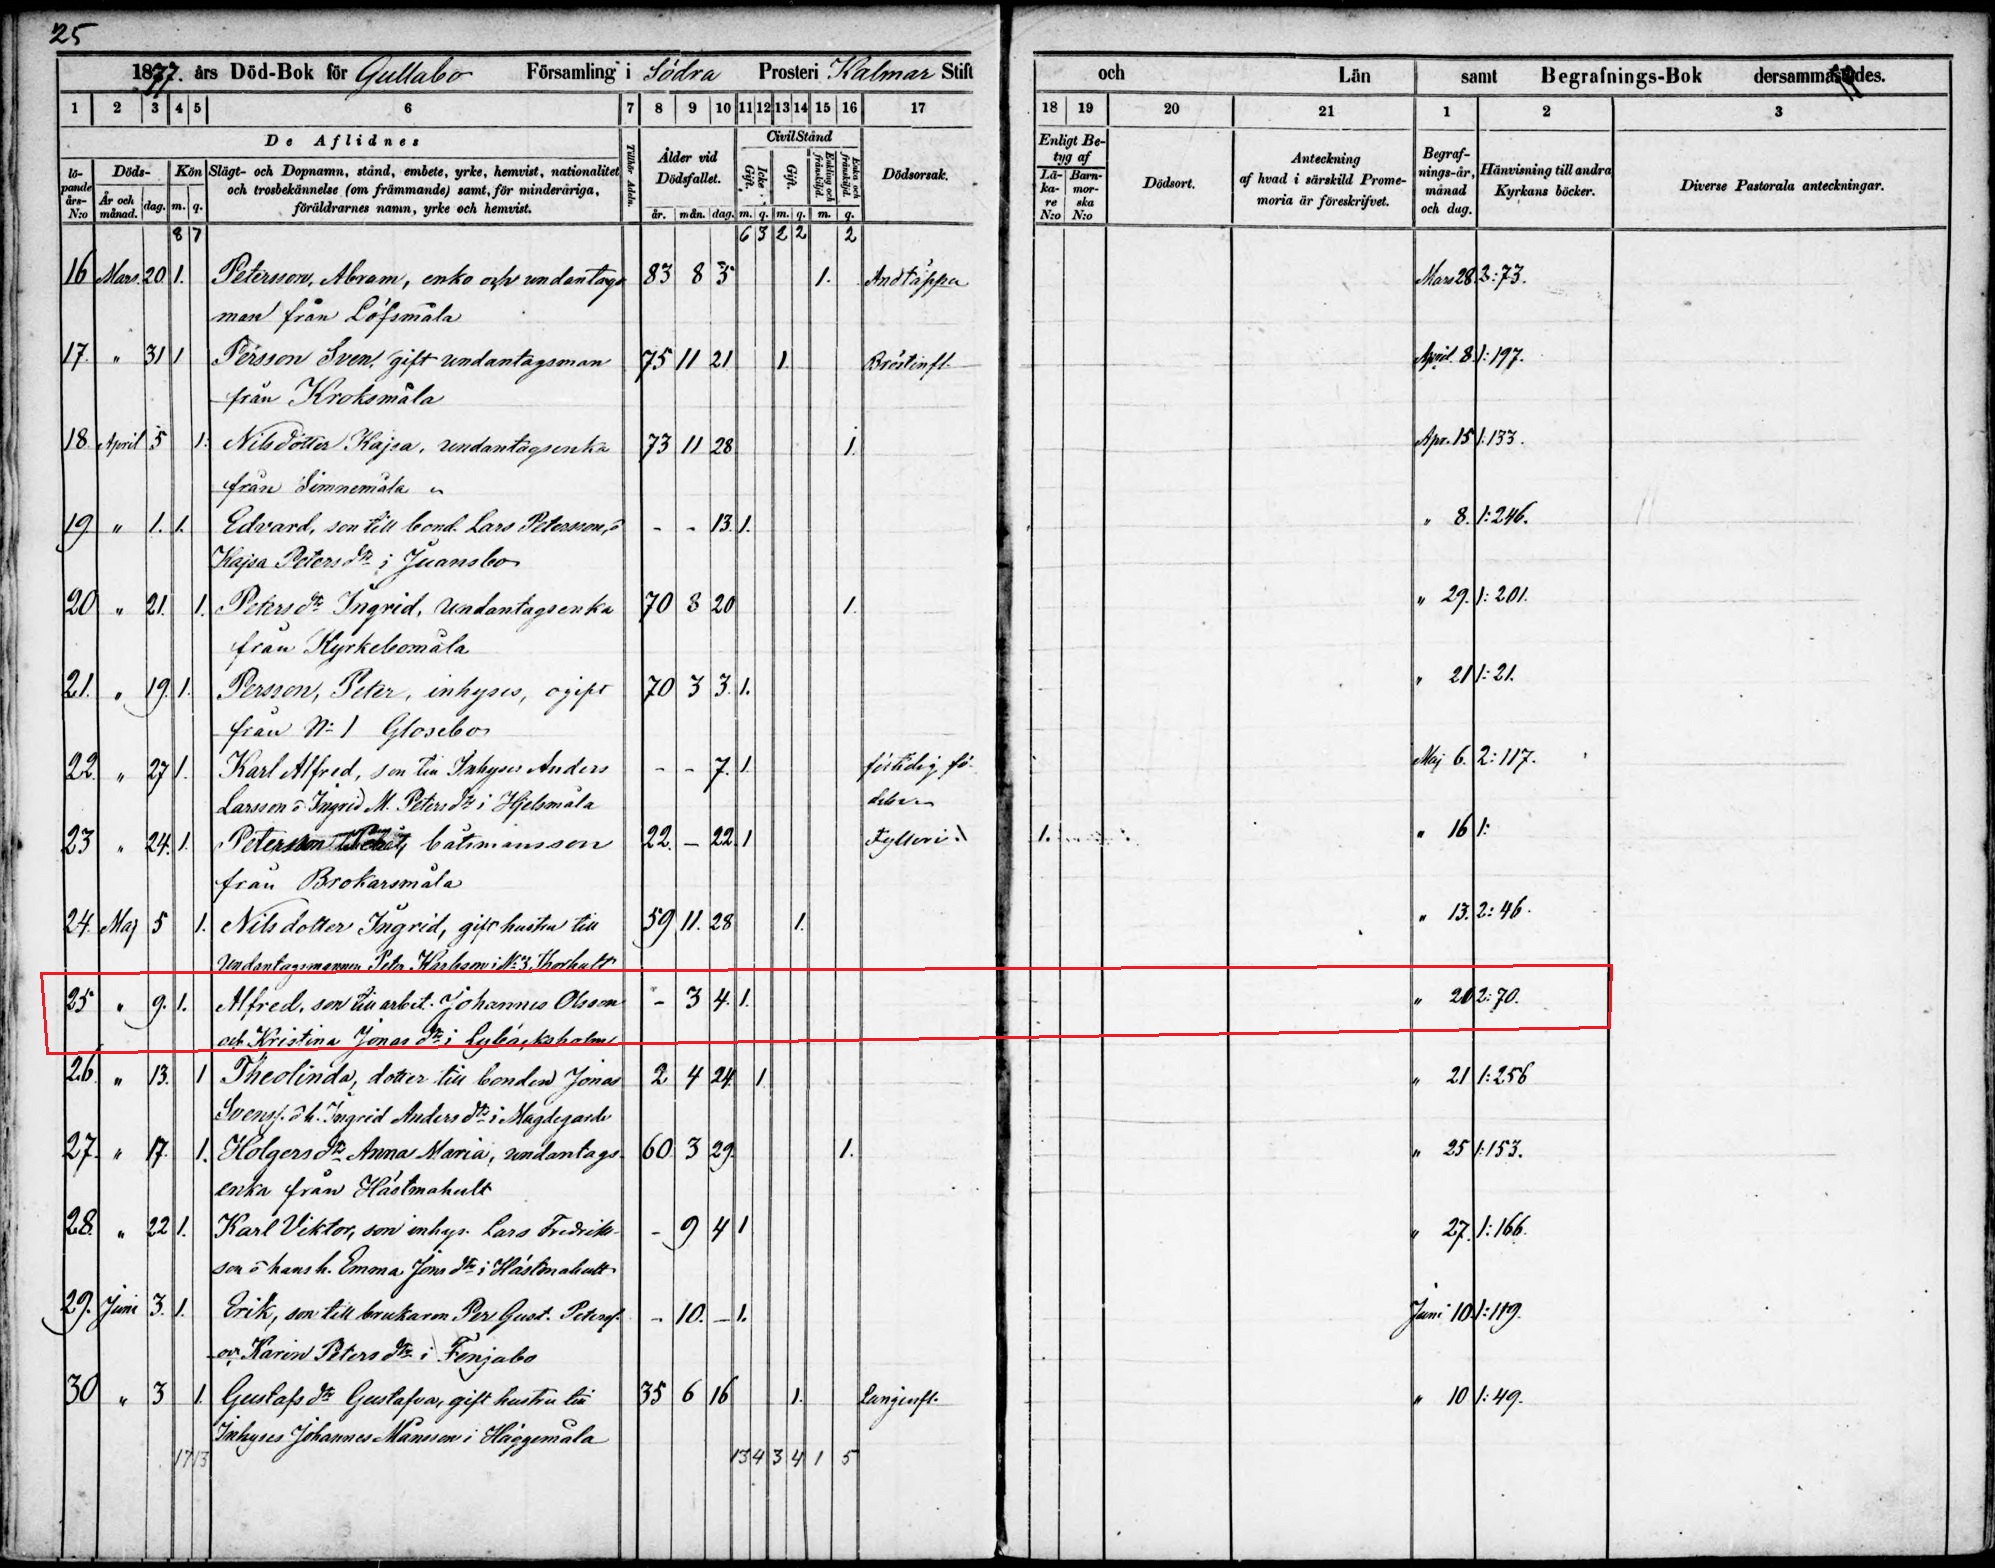 25
1877. års Död-Bok för Gullabo Församling i Södra Prosteri Kalmar Stift
och Län samt Begrafnings-Bok dersammastädes.
1 2 3 4 5 6 7 8 9 10 11 12 13 14 15 16 17 18 19 20 21 1 2 3
De Aflidnes
Civil Stånd
löpande års-N:o
Döds-
År och månad. dag.
Kön
m. q.
Slägt- och Dopnamn, stånd, embete, yrke, hemvist, nationalitet
och trosbekännelse (om främmande) samt, för minderåriga,
föräldrarnes namn, yrke och hemvist.
Tillhör Adeln
Ålder vid
Dödsfallet.
år. mån. dag.
Icke Gift.
Gift.
Enkling och frånskild.
Enka och frånskild.
m. q. m. q. m. q.
Dödsorsak.
Enligt Be-
tyg af
Lä-
ka-
re
N:o
Barn-
mor-
ska
N:o
Dödsort.
Anteckning
af hvad i särskild Prome-
moria är föreskrifvet.
Begraf-
nings-år,
månad
och dag.
Hänvisning till andra
Kyrkans böcker.
Diverse Pastorala anteckningar.
8 7 6 3 2 2 2
16 Mars 20 1. Petersson, Abram, enko och undantags 83 8 5 1. Andtäppa Mars 28. 2:73.
man från Löfsmåla
17. " 31 1 Persson Sven, gift undantagsman 75 11 21 1. Bröstinfl. April. 8. 1:197.
från Kroksmåla
18 April 5 1. Nilsdotter Kajsa, undantagsenka 73 11 28 1. Apr. 15 1:133.
från "
19 " 1. 1. Edvard, son till bond. Lars Petersson, o - - 13. 1. " 8. 1:246.
Kajsa Petersdtr i Juansbo
20 " 21. 1. Petersdtr Ingrid, undantagsenka 70 8 20 1. " 29. 1:201.
från Kyrkebomåla
21. " 19. 1. Persson, Peter, inhyses, ogift 70 3 3. 1. " 21 1:21.
från No 1 Glosebo
22. " 27 1. Karl Alfred, son till Inhyses Anders - - 7. 1. förtidig fö- Maj 6. 2:117.
Larsson o Ingrid M. Petersdtr i Hjelsmåla delse
23 " 24. 1. båtsmansson 22. - 22. 1 Fylleri 1. " 16 1:
från Brokarsmåla
24. Maj 5 1. Nilsdotter Ingrid, gift hustru till 59 11. 28 1. " 13. 2:46.
Undantagsmannen Peter Karlsson i No 3. Thorhult
25 " 9. 1. Alfred, son till arbet. Johannes Olsson - 3 4. 1. " 20 2:70.
och Kristina Jonasdtr i Lybäcksholm
26. " 13. 1 Theolinda, dotter till bonden Jonas 2 4 24. 1. " 21 1:256
Svenss. o h. Ingrid Andersdtr i Magdegärde
27. " 17. 1. Holgersdtr Anna Maria, undantags- 60. 3 29. 1. " 25 1:153.
enka från Hästmahult
28. " 22 1. Karl Viktor, son inhys. Lars Fredriks- - 9 4 1 " 27. 1:166.
son o hans h. Emma Jonsdtr i Hästmahult
29. Juni 3. 1. Erik, son till brukaren Per Gust. Peterss. - 10. - 1. Juni 10. 1:119.
Karin Petersdtr i Fenjabo
30 " 3 1. Gustafsdtr Gustafva, gift hustru till 35 6 16 1. Lunginfl. " 10 1:49.
Inhyses Johannes Månsson i Häggemåla
17 13 13 4 3 4 1 5